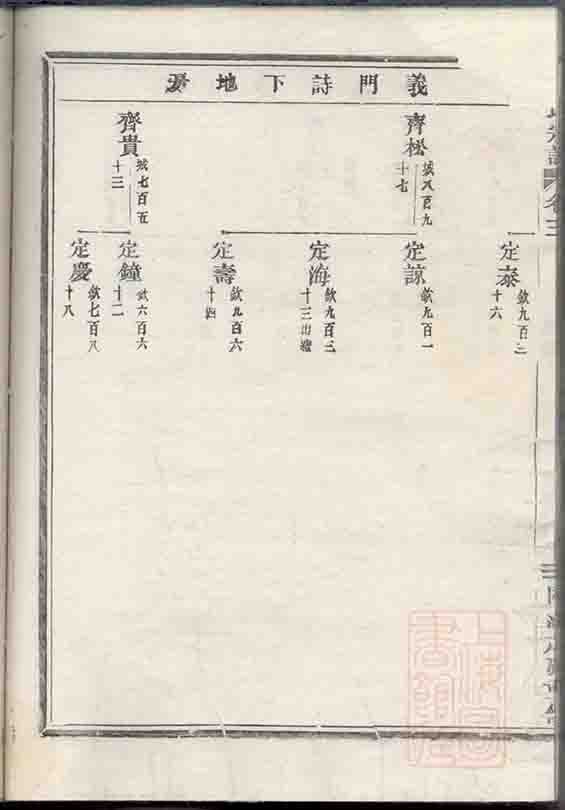 義門詩下地
齊松
城八百九
十七
齊貴
城七百五
十三
定泰
欽九百二
十六
定諒
欽九百一
定海
欽九百三
十三出繼
定壽
欽九百六
十四
定鐘
欽六百六
十二
定慶
欽七百八
十八
上海